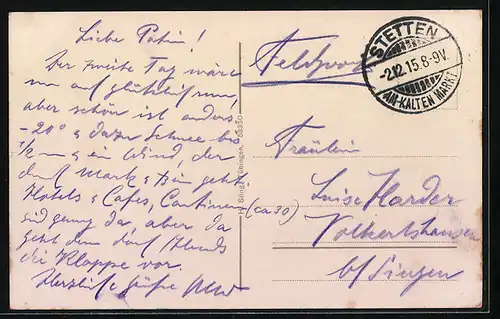 Liebe Patin!
Der zweite Tag wäre
nun auf
aber schön ist anders
-20° & dazu Schnee bis
1/2 m & ein Wind, der
durch Mark & Bein geht.
Hotels & Cafes, Cantinen
(ca 30)
sind genug da, aber da
geht dem
die Klappe vor.
Herzliche Grüße
Feldpost
STETTEN
-2.12.15.8-9V.
AM-KALTEN MARKT
Fräulein
Luise Harder
Volkertshausen
b/ Singen